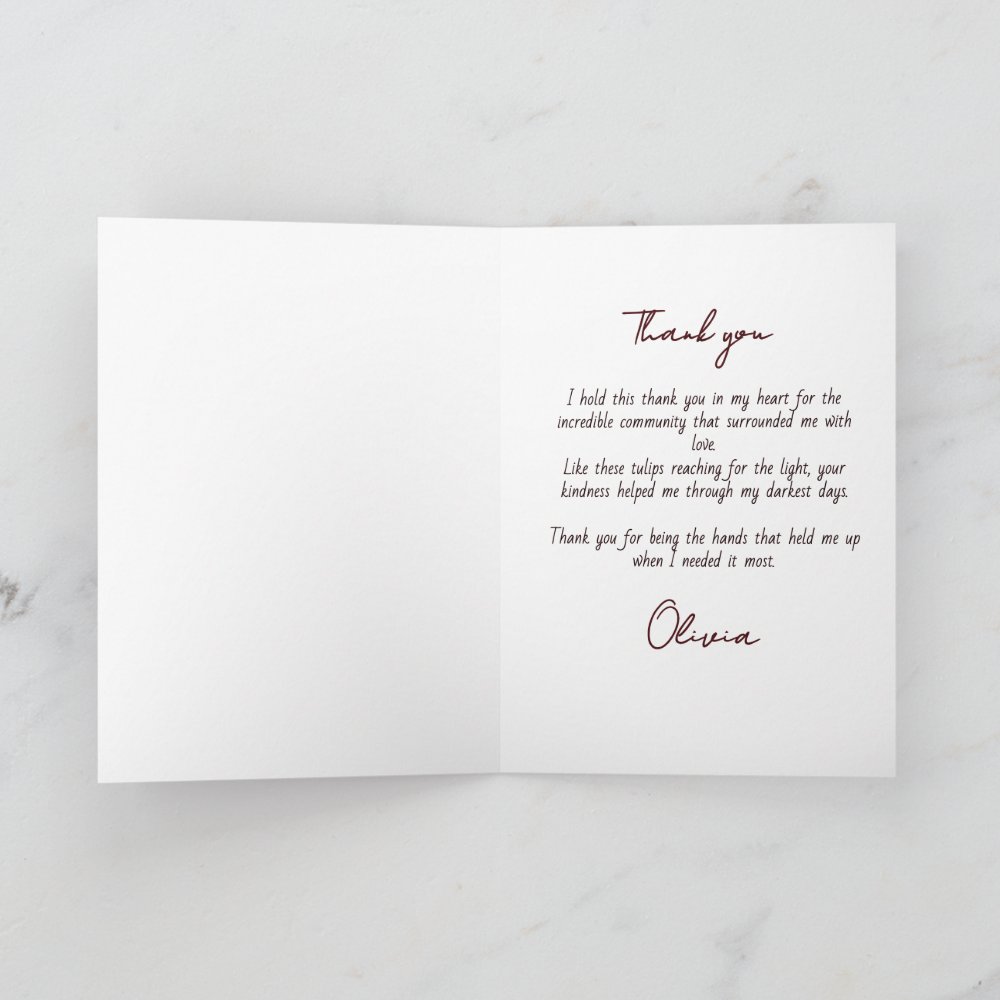 Thank you
I hold this thank you in my heart for the
incredible community that surrounded me with
love.
Like these tulips reaching for the light, your
kindness helped me through my darkest days.
Thank you for being the hands that held me up
when I needed it most.
Olivia